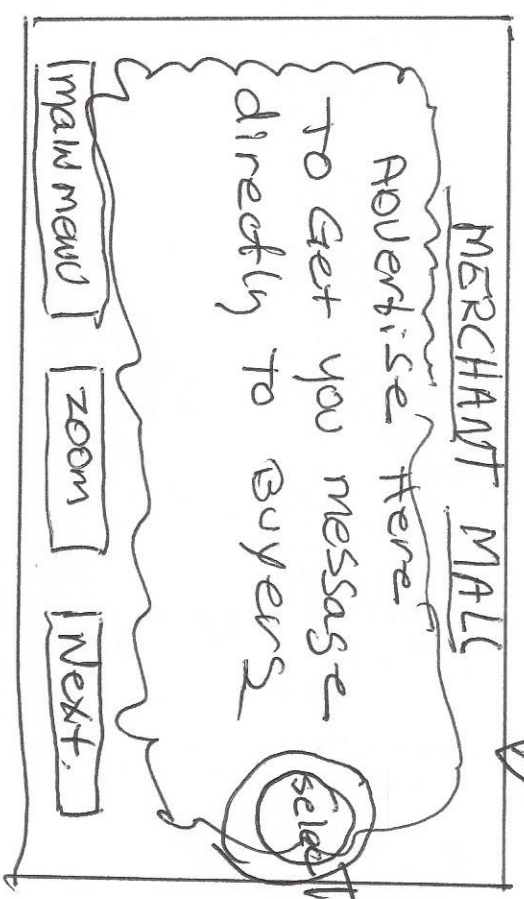 MERCHANT MALL
ADVertise Here
To Get you message
directly To Buyers
select
main menu
zoom
Next.